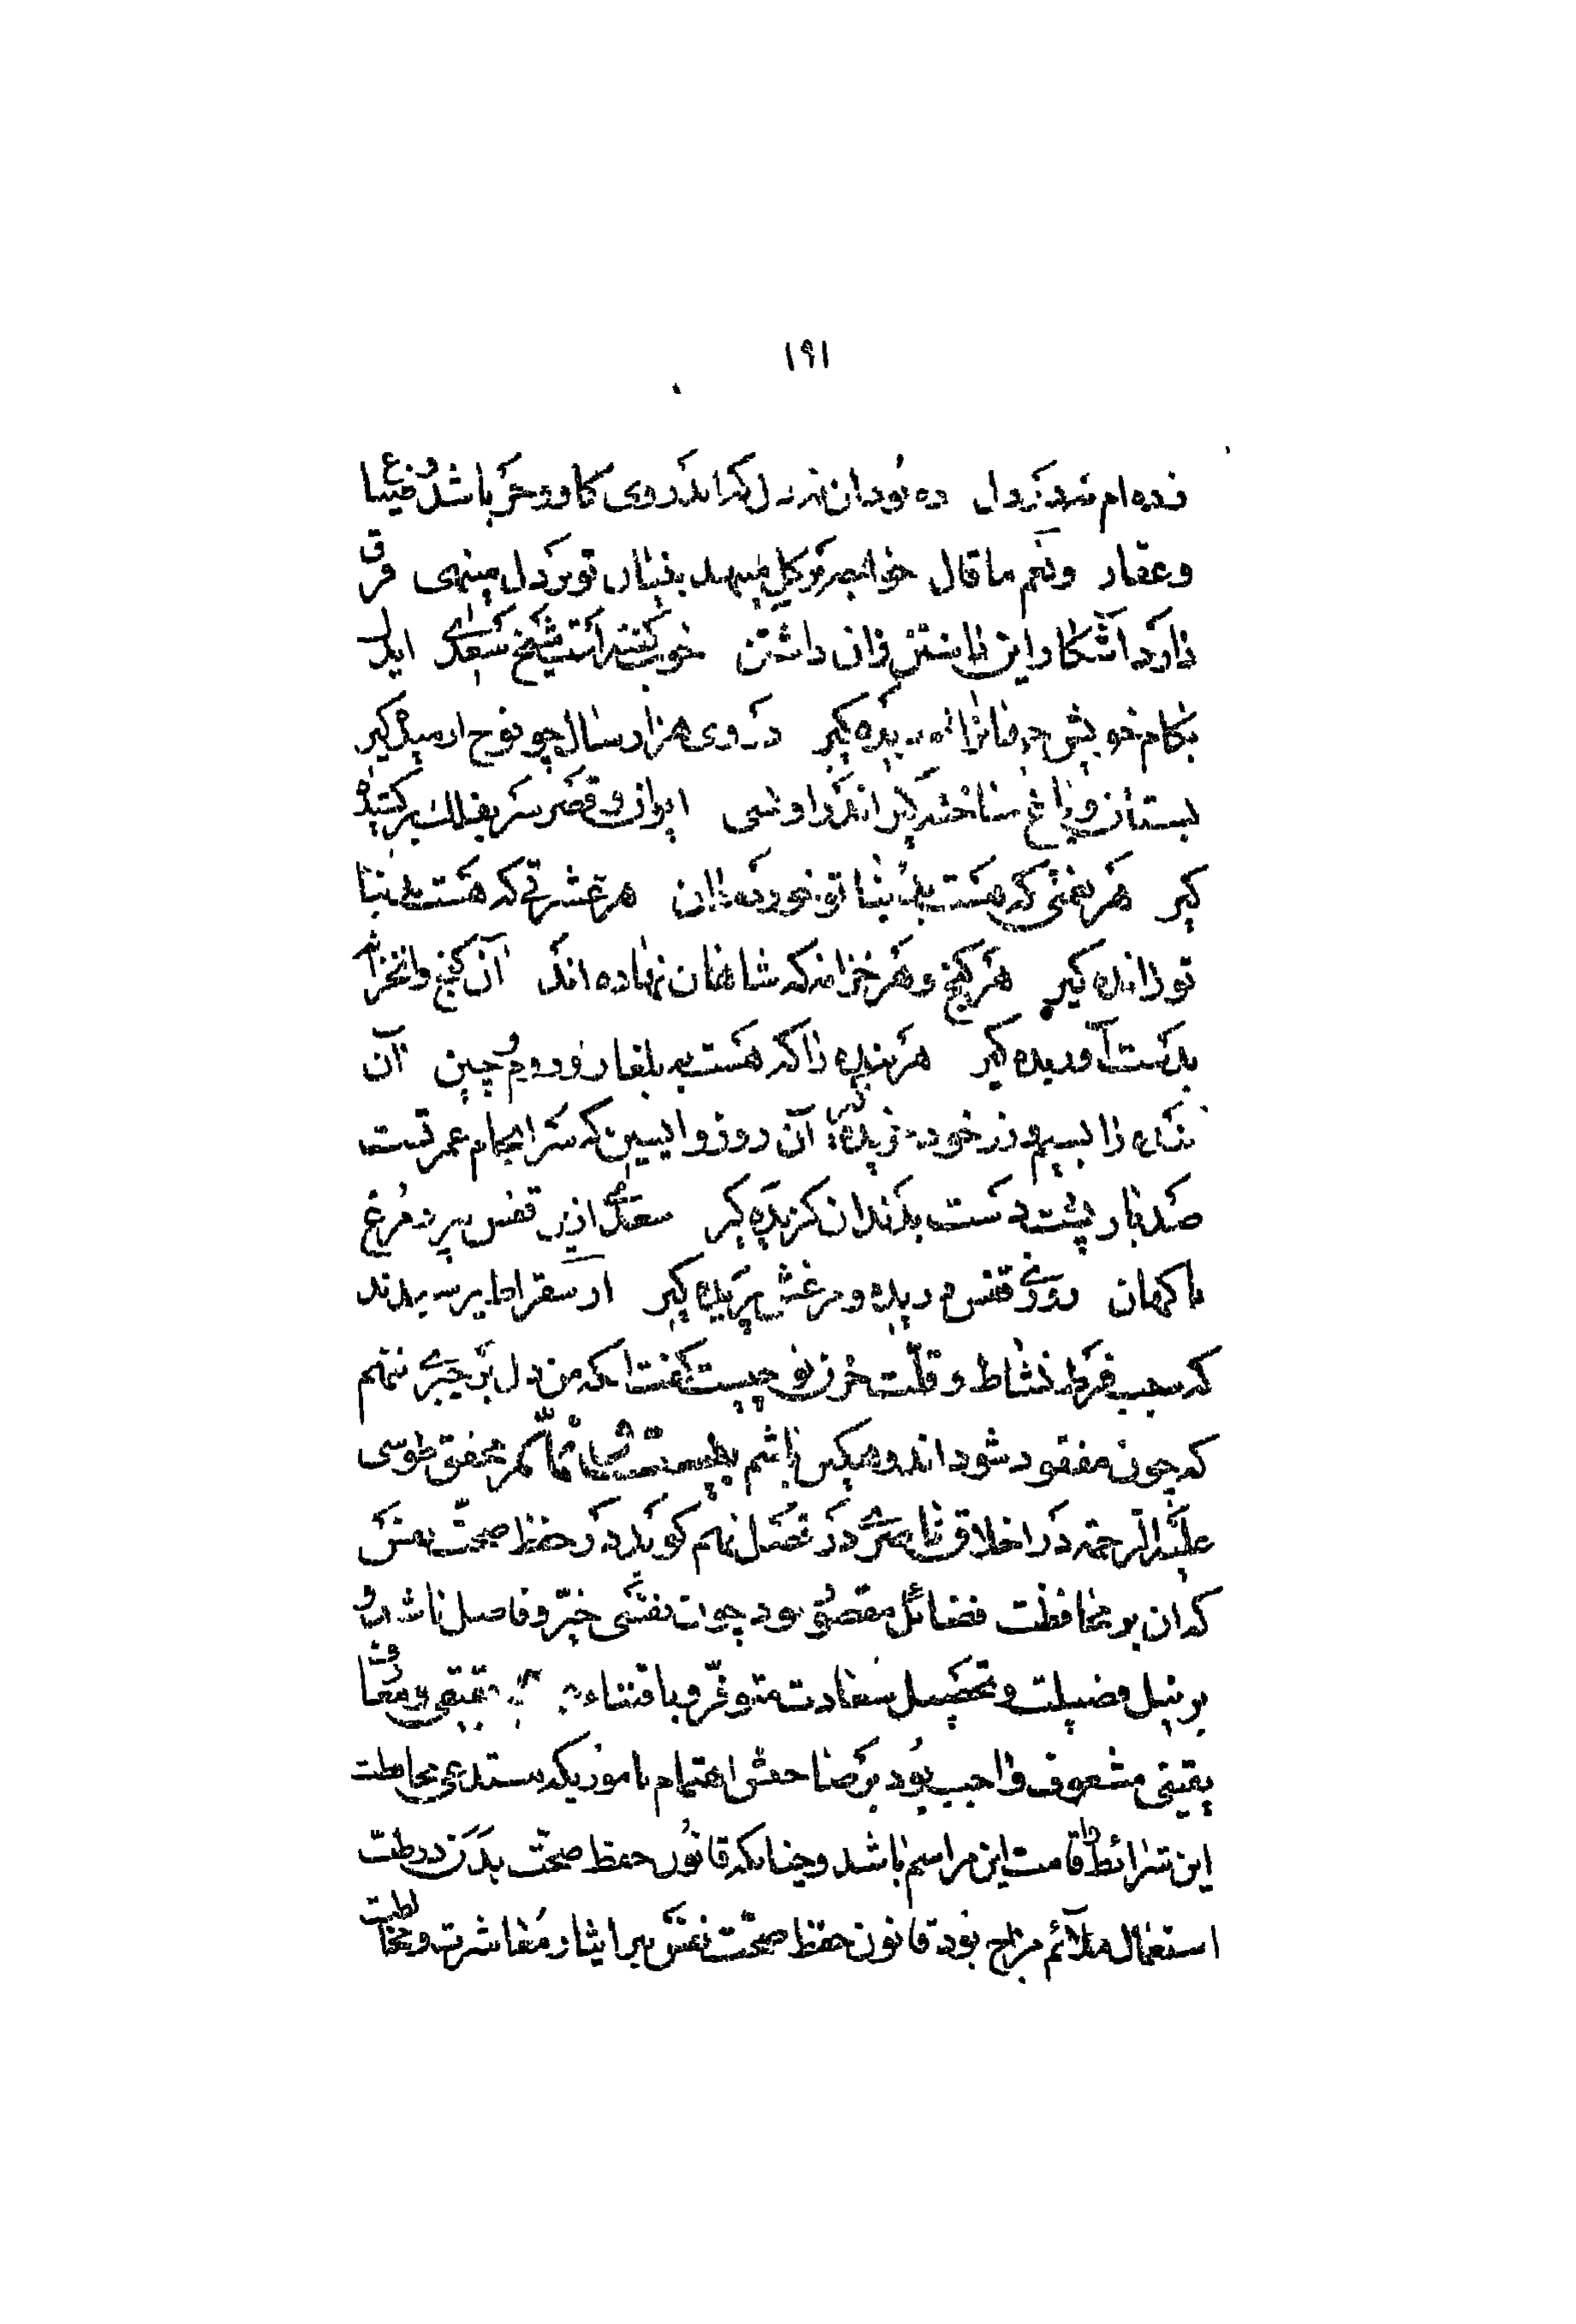 ۱۹۱
زده‌ام نبرد دل ده بود آن نه دل که اندر وی کاو و خر باشد و ضیاع
و عقار و نعم ما قال خواجه توکل دل مینهی فرق
را و آشکار این را داشتن خوب کفته است شیخ سعدی ایدل
بکام خویش جهانرا دیده کیر در وی هزار سال چو نوح ارمیده کیر
بستان و باغ ساخته کیر اندر او بسی ایوان و قصر سر بفلک برکشیده
کیر هر نعمتی که هست بدنیا تو خورده دان هر عشرتی که هست بدنیا
تو رانده کیر هر کنج و هر خزانه که شاهان نهاده‌اند آن کنج و آنخزانه
بدست آوریده کیر هر بنده را که هست به بلغار و روم و چین آن
بنده را بسیم و زر خود خریده کیر آن روز واپسین که سرانجام عمر تست
صد بار پشت دست بدندان کزیده کیر سعدی ازین قفس بپرد مرغ
ناکهان روزی قفس دریده و مرغش پریده کیر از سقراط پرسیدند
که سبب فرط نشاط و قلت حزن تو چیست کفت آنکه من دل بر چیزی ننهم
که چون مفقود شود اندوهکین باشم محقق طوسی
علیه الرحمة در اخلاق ناصری در فصل نهم کوید در حفظ صحت نفس
که ان بر محافظت فضائل مقصور بود چون نفس خیّر و فاضل باشد و
بر نیل فضیلت و تحصیل سعادت متوفّر و باقتناء حقیقی و معارف
یقینی مشعوف واجب بود بر صاحبش اهتمام باموریکه مستدعی محافظت
این شرائط و اقامت این مراسم باشد و چنانکه قانون حفظ صحت بدن در طبّ
استعمال ملائم مزاج بود قانون حفظ صحّت نفس بر ایثار معاشرت و مخالطت